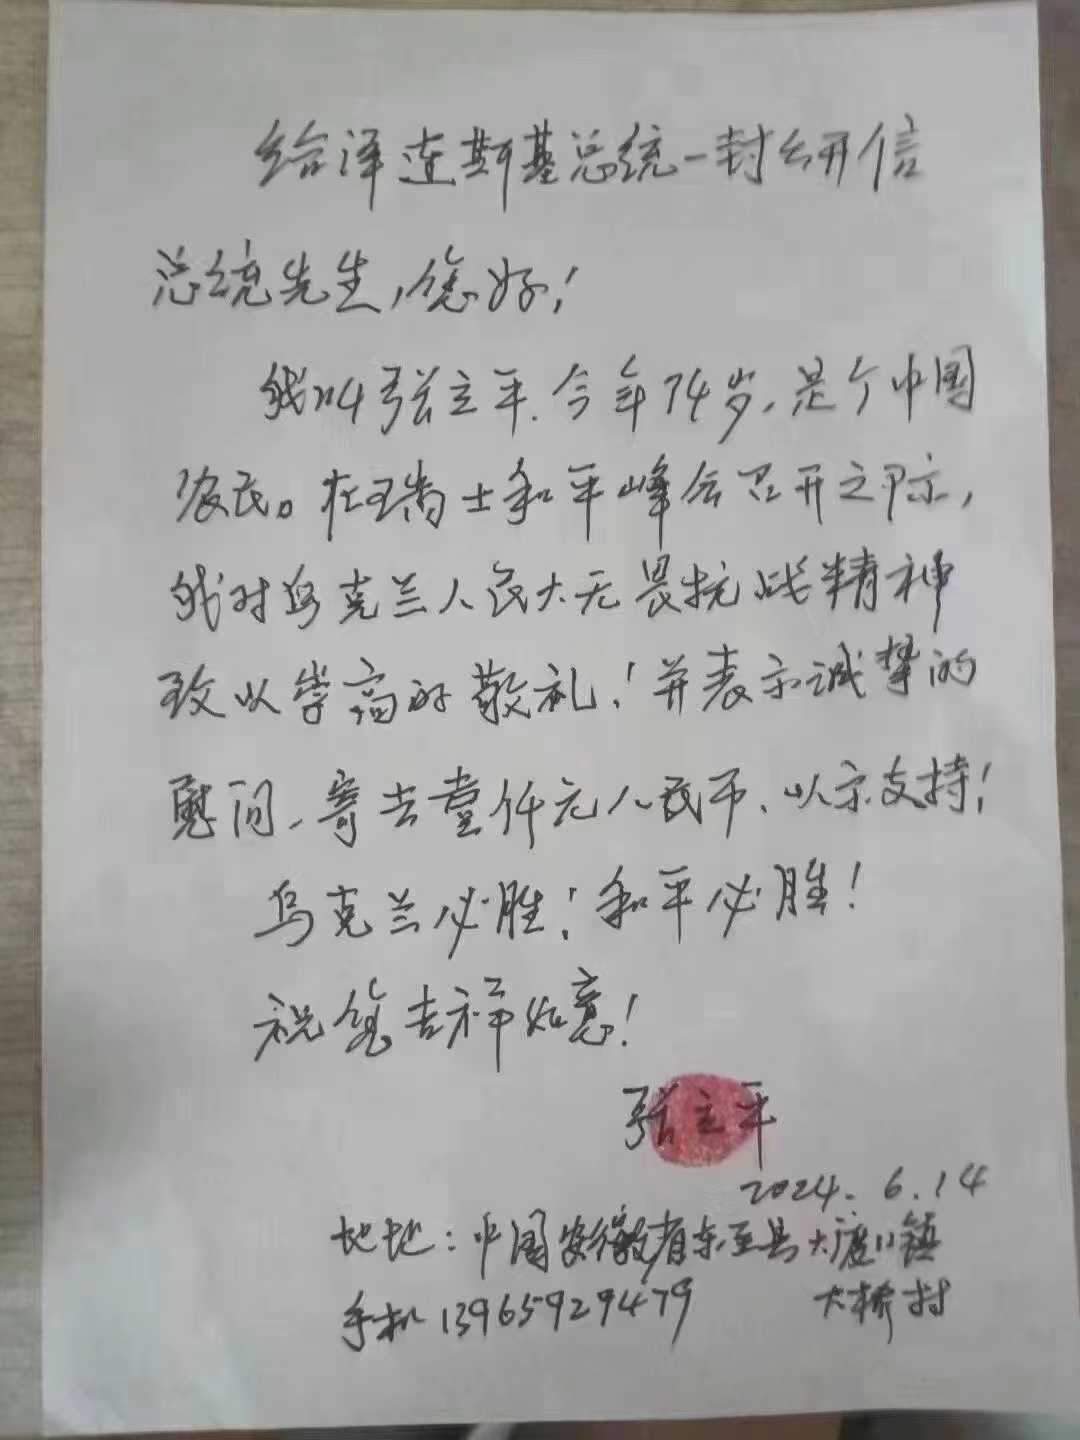 给泽连斯基总统一封公开信
总统先生,您好!
我叫张立平.今年74岁,是个中国
农民。在瑞士和平峰会召开之际,
我对乌克兰人民大无畏抗战精神
致以崇高的敬礼!并表示诚挚的
慰问、寄去壹仟元人民币、以示支持!
乌克兰必胜!和平必胜!
祝您吉祥如意!
张立平
2024.6.14
地址:中国安徽省东至县大渡口镇
大桥村
手机13965929479